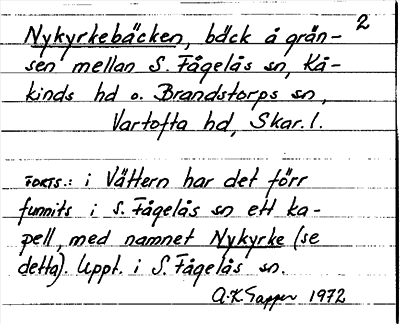 2
Nykyrkebäcken, bäck å grän-
sen mellan S. Fågelås sn, Kå-
kinds hd o. Brandstorps sn,
Vartofta hd, Skar. l.
FORTS.: i Vättern har det förr
funnits i S. Fågelås sn ett ka-
pell, med namnet Nykyrke (se
detta). Uppt. i S. Fågelås sn.
A.K. 1972